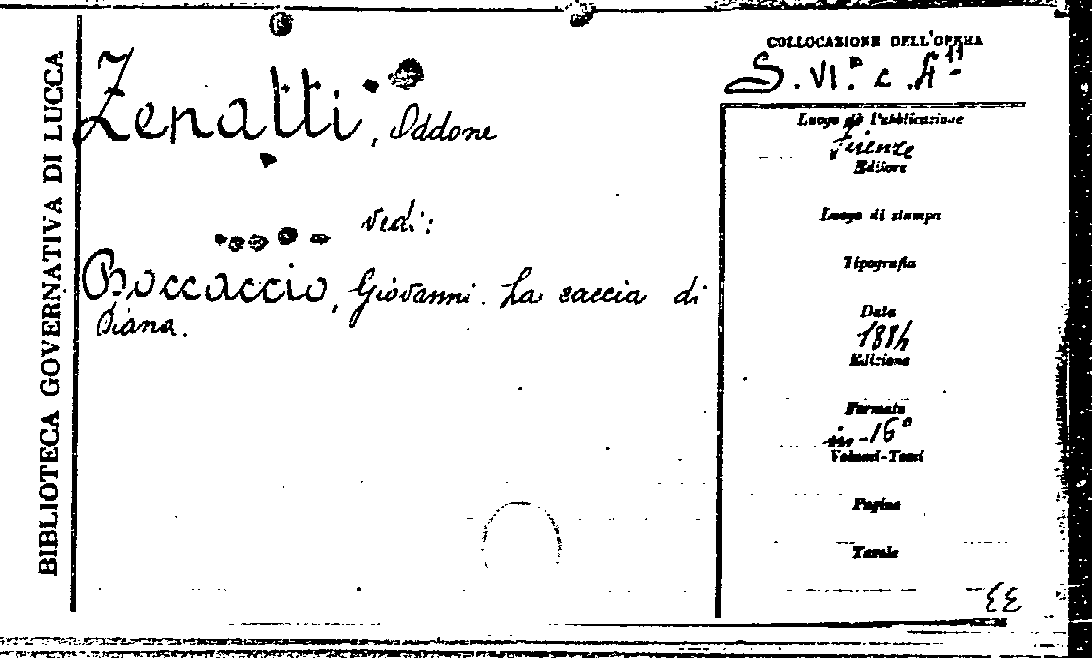 BIBLIOTECA GOVERNATIVA DI LUCCA
Zenatti, Oddone
vedi:
Boccaccio, Giovanni. La caccia di
Diana.
COLLOCAZIONE DELL'OPERA
S. VI.
Luogo di Pubblicazione
Firenze
Editore
Luogo di stampa
Tipografia
Data
1884
Edizione
Formato
in-16°
Volumi-Tomi
Pagine
Tavole